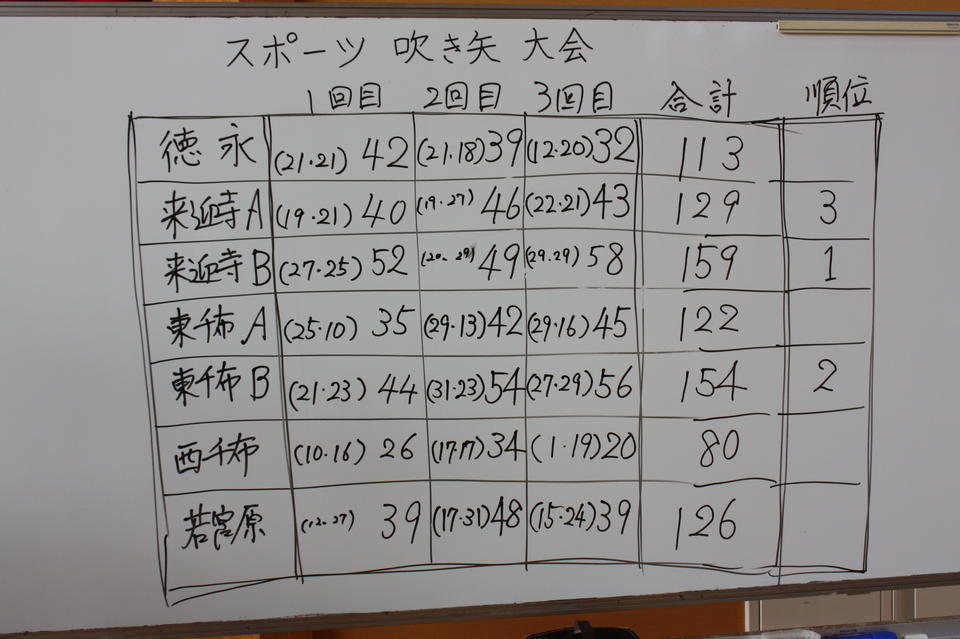 スポーツ 吹き矢 大会
1回目 2回目 3回目 合計 順位
徳永 (21・21) 42 (21.18) 39 (12・20) 32 113
来迎寺A (19・21) 40 (19・27) 46 (22・21) 43 129 3
来迎寺B (27・25) 52 (20・29) 49 (29.29) 58 159 1
東千布A (25・10) 35 (29・13) 42 (29・16) 45 122
東千布B (21・23) 44 (31・23) 54 (27・29) 56 154 2
西千布 (10・16) 26 (17・17) 34 (1・19) 20 80
若宮原 (12・27) 39 (17・31) 48 (15・24) 39 126